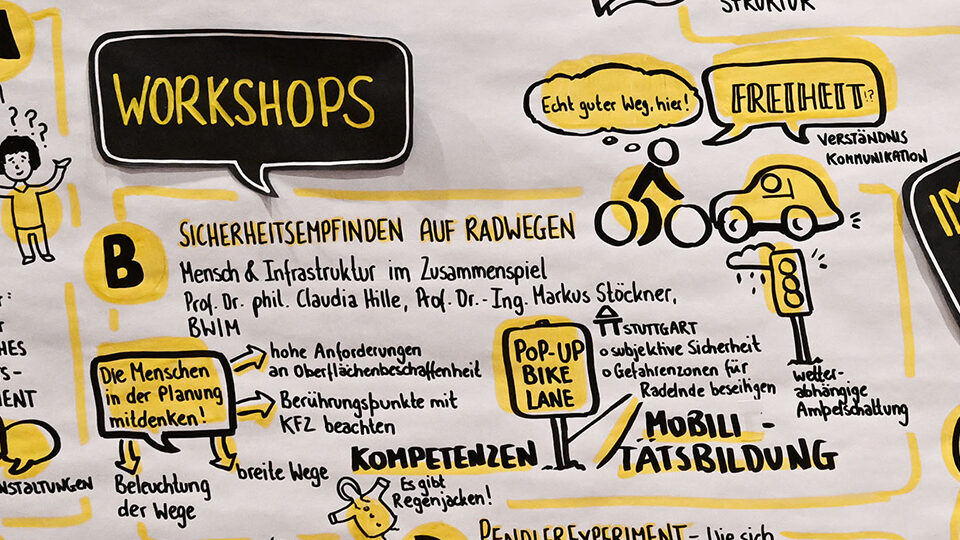 STRUKTUR
WORKSHOPS
Echt guter Weg, hier!
FREIHEIT!?
VERSTÄNDNIS
KOMMUNIKATION
???
B
SICHERHEITSEMPFINDEN AUF RADWEGEN
Mensch & Infrastruktur im Zusammenspiel
Prof. Dr. phil. Claudia Hille, Prof. Dr.-Ing. Markus Stöckner,
BWIM
Die Menschen
in der Planung
mitdenken!
hohe Anforderungen
an Oberflächenbeschaffenheit
Berührungspunkte mit
KFZ beachten
breite Wege
Beleuchtung
der Wege
POP-UP
BIKE
LANE
STUTTGART
o subjektive Sicherheit
o Gefahrenzonen für
Radelnde beseitigen
Wetter-
abhängige
Ampelschaltung
KOMPETENZEN
Es gibt
Regenjacken!
MOBILI-
TÄTSBILDUNG
PENDLEREXPERIMENT - Wie sich